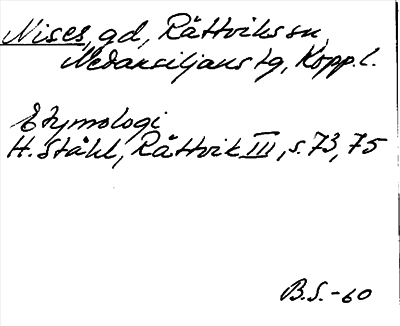 Nises, gd, Rättviks sn,
Nedansiljans tg, Kopp. l.
Etymologi
H. Ståhl, Rättvik III, s. 73, 75
B.S. -60